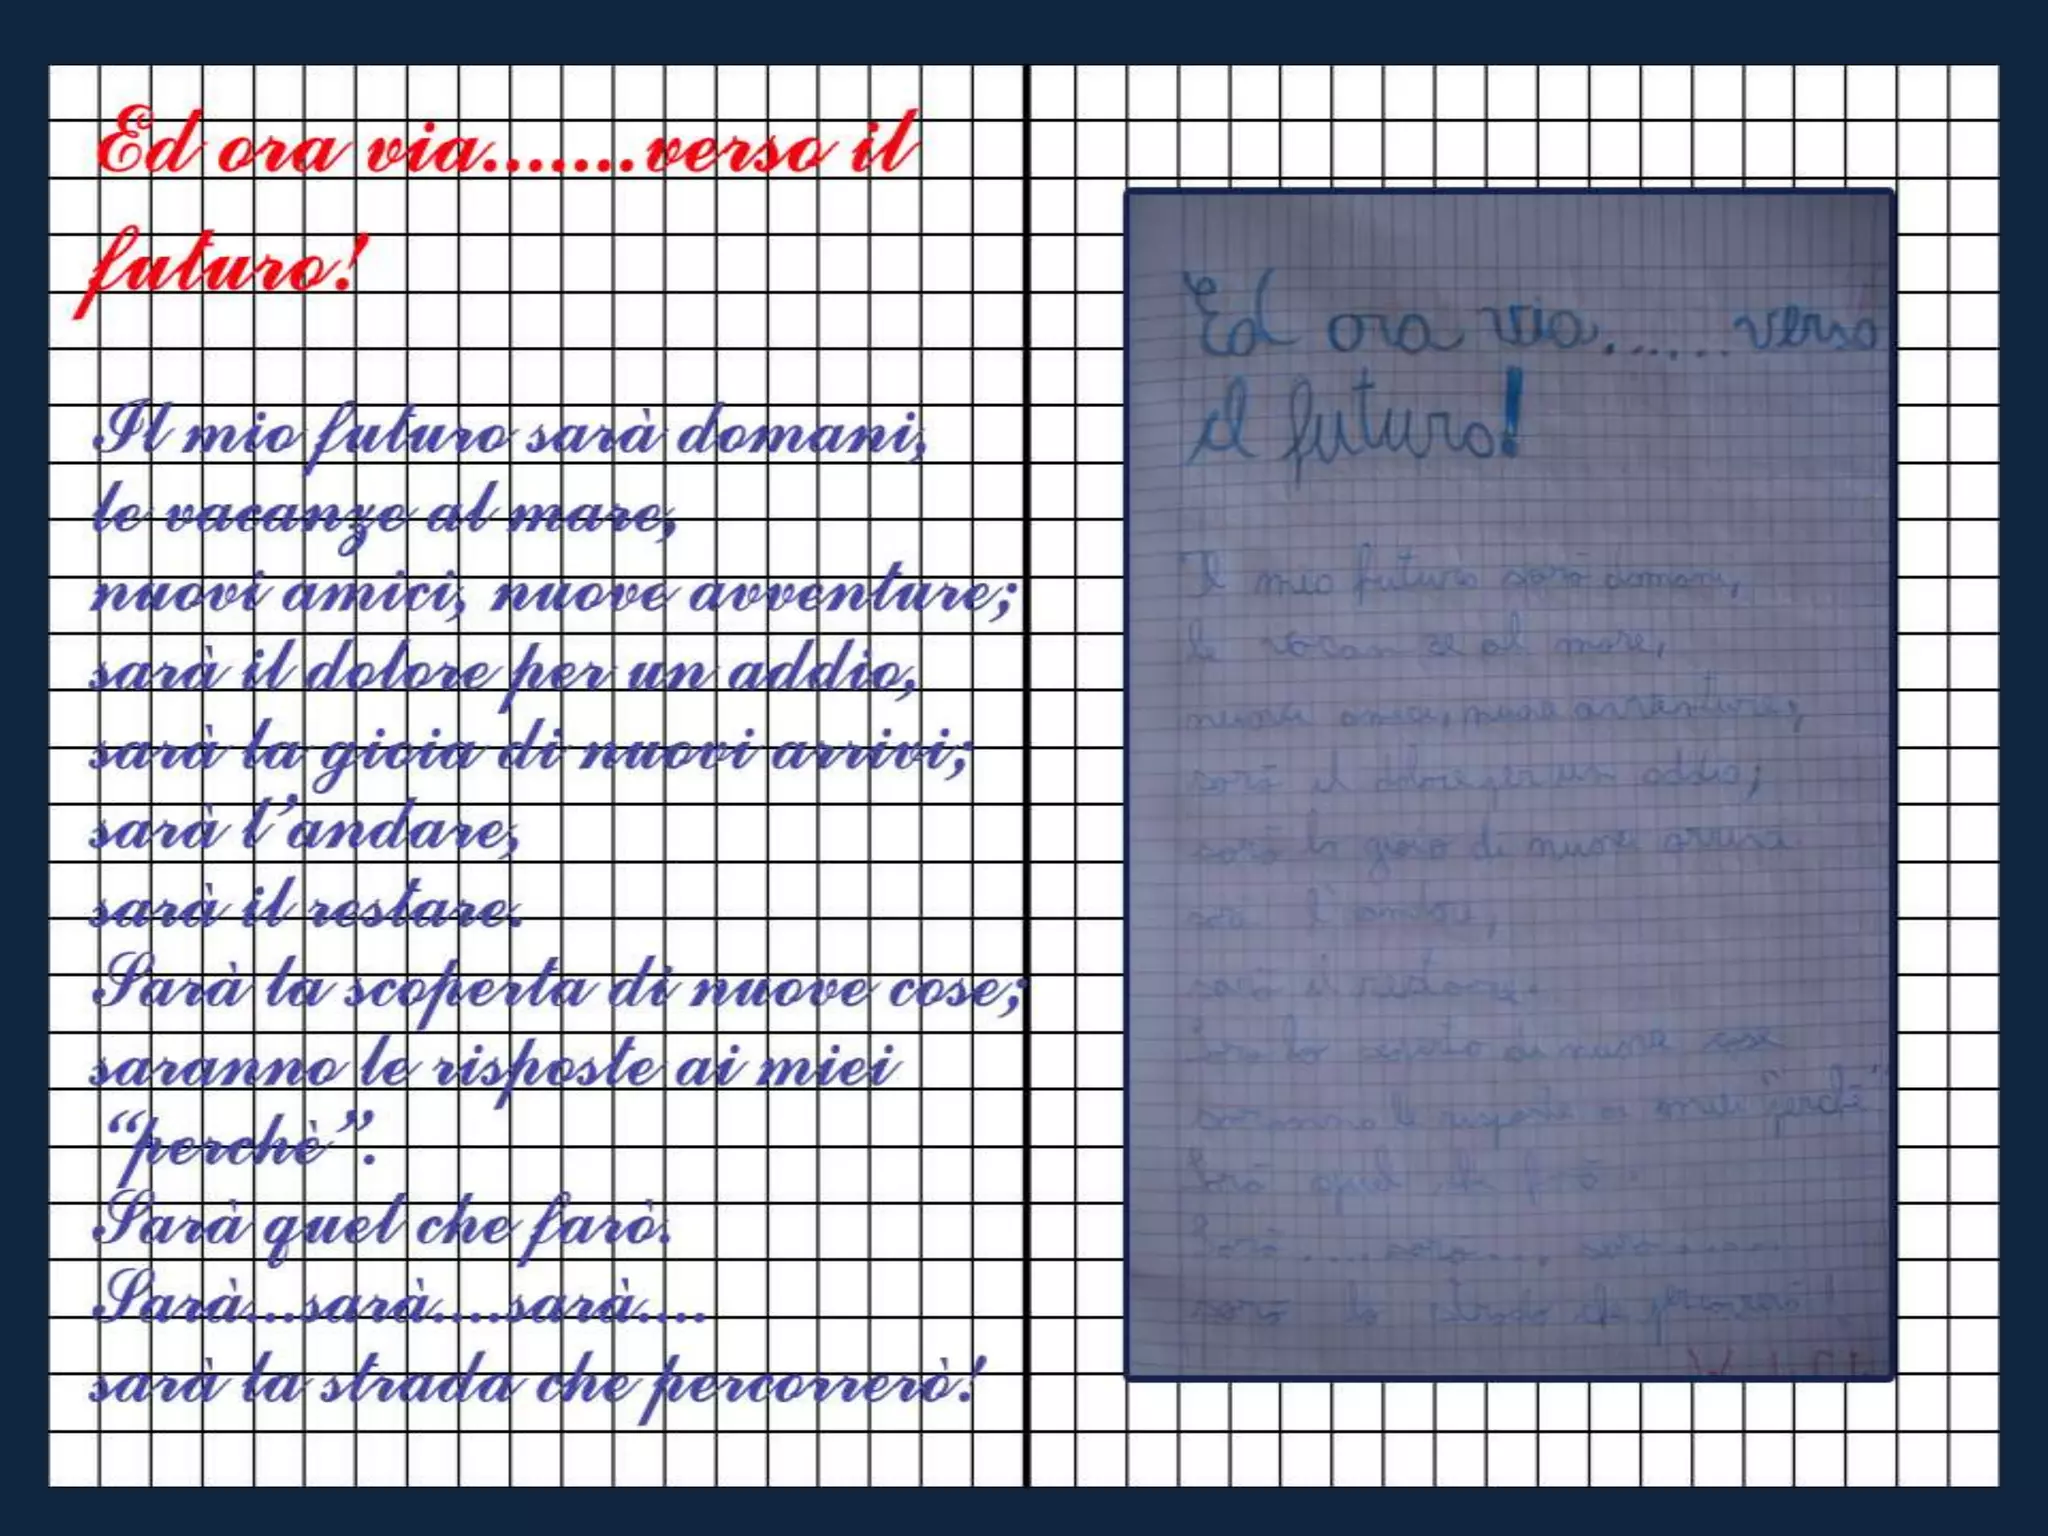 Ed ora via.......verso il
futuro!
Il mio futuro sarà domani,
le vacanze al mare,
nuovi amici, nuove avventure;
sarà il dolore per un addio,
sarà la gioia di nuovi arrivi;
sarà l'andare,
sarà il restare.
Sarà la scoperta di nuove cose;
saranno le risposte ai miei
“perchè”.
Sarà quel che farò.
Sarà...sarà....sarà....
sarà la strada che percorrerò!
Ed ora via......verso
il futuro!
Il mio futuro sarà domani,
le vacanze al mare,
nuovi amici, nuove avventure,
sarà il dolore per un addio;
sarà la gioia di nuovi arrivi
sarà l'andare,
sarà il restare.
Sarà la scoperta di nuove cose
saranno le risposte ai miei “perchè”
Sarà quel che farò.
Sarà.....sarà....sarà......
sarà la strada che percorrerò!